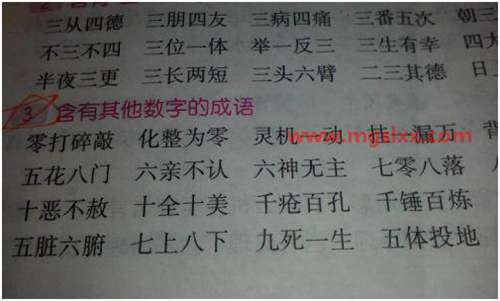 三从四德 三朋四友 三病四痛 三番五次 朝三
不三不四 三位一体 举一反三 三生有幸 四大
半夜三更 三长两短 三头六臂 二三其德 日
3 含有其他数字的成语
零打碎敲 化整为零 灵机一动 挂一漏万 背
www.mgslxx.com
五花八门 六亲不认 六神无主 七零八落
十恶不赦 十全十美 千疮百孔 千锤百炼
五脏六腑 七上八下 九死一生 五体投地